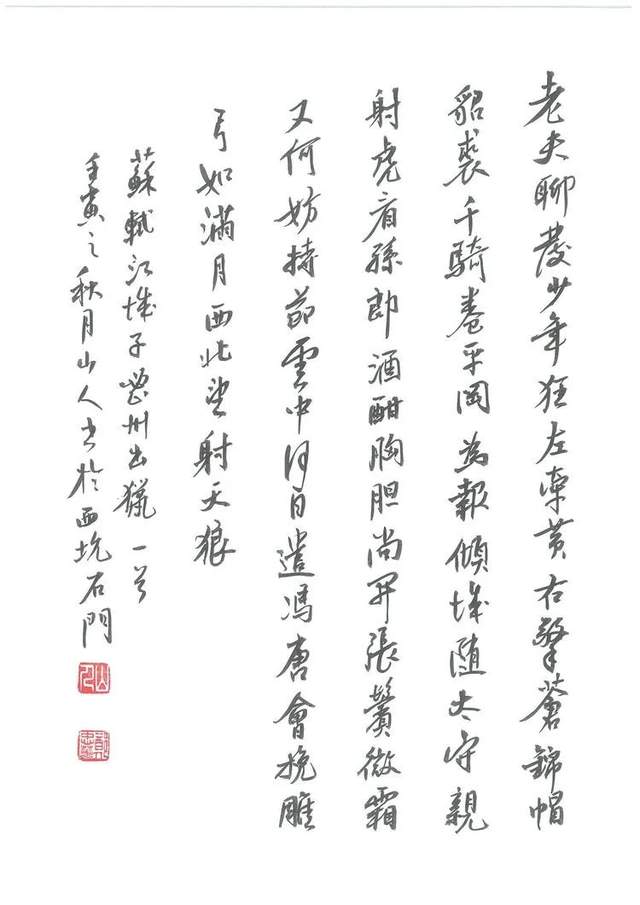 老夫聊發少年狂左牽黃右擎蒼錦帽
貂裘千騎卷平岡為報傾城隨太守親
射虎看孫郎酒酣胸胆尚開張鬢微霜
又何妨持節雲中何日遣馮唐會挽雕
弓如滿月西北望射天狼
蘇軾江城子密州出獵一首
壬寅之秋月山人書於西坑石門